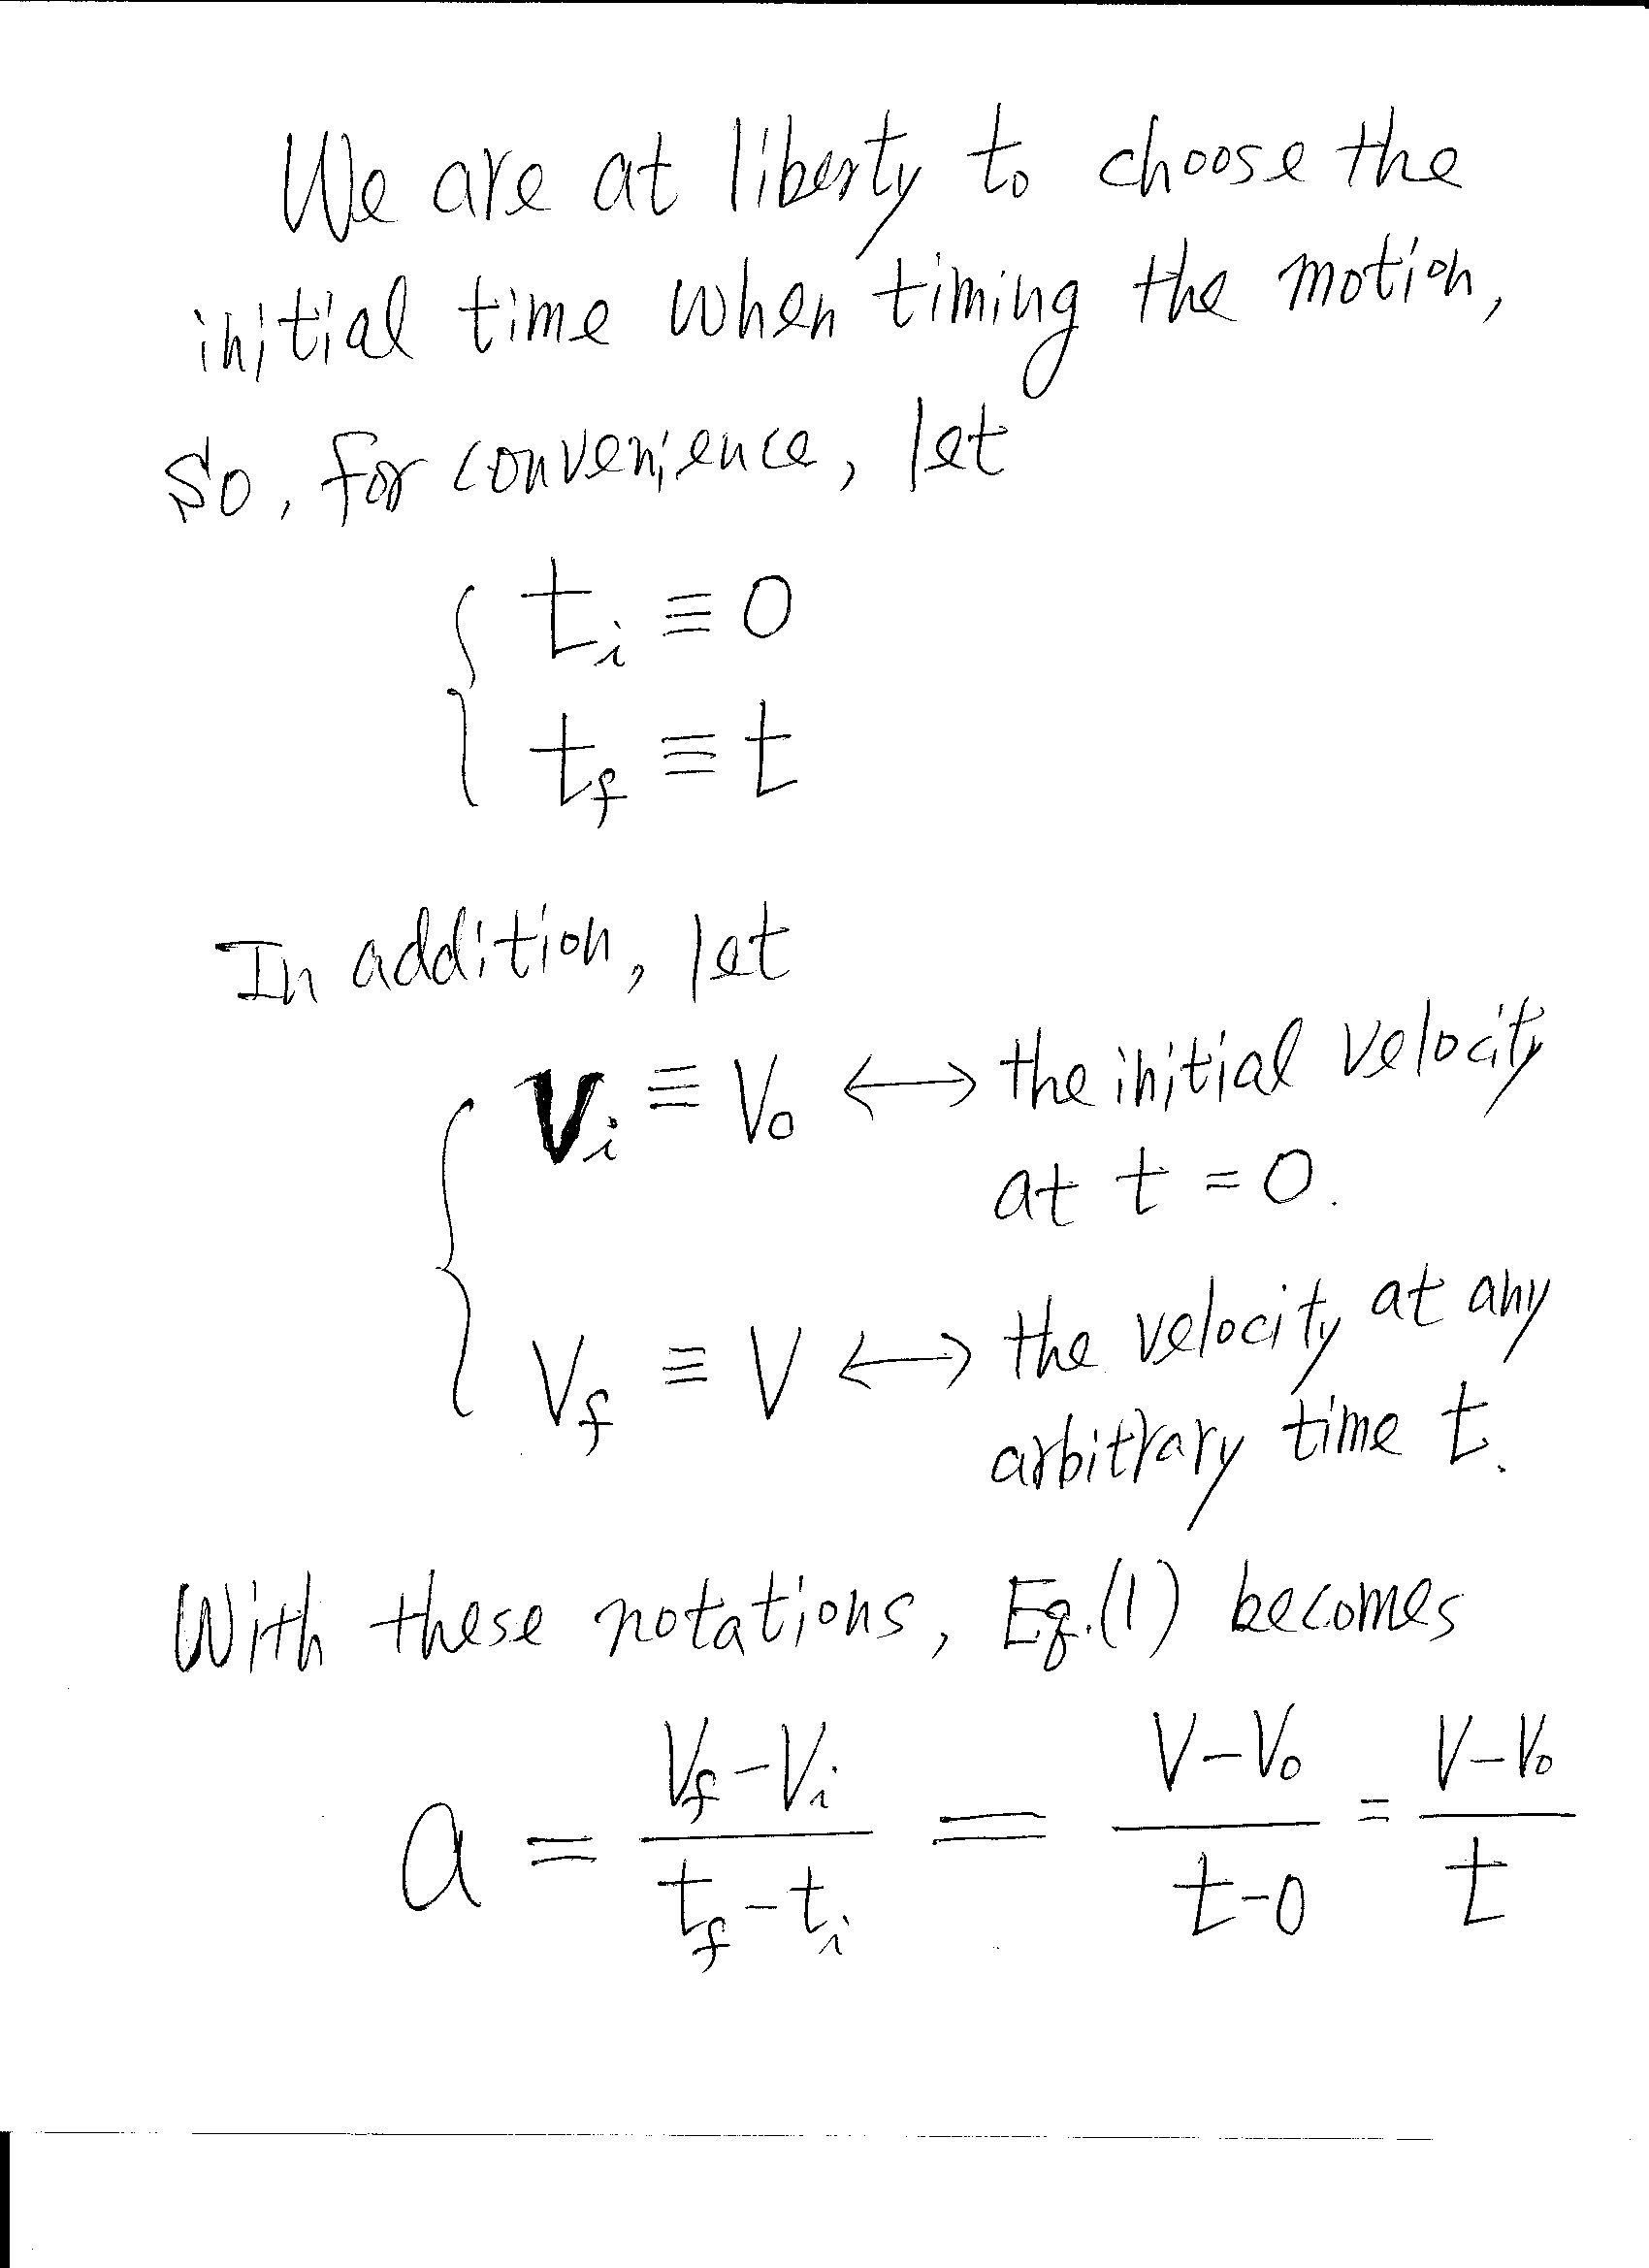 We are at liberty to choose the
initial time when timing the motion,
So, for convenience, let
t_i ≡ 0
t_f ≡ t
In addition, let
V_i ≡ V_0 ⟷ the initial velocity
at t = 0.
V_f ≡ V ⟷ the velocity at any
arbitrary time t.
With these notations, Eq.(1) becomes
a = (V_f - V_i)/(t_f - t_i) = (V - V_0)/(t - 0) = (V - V_0)/t